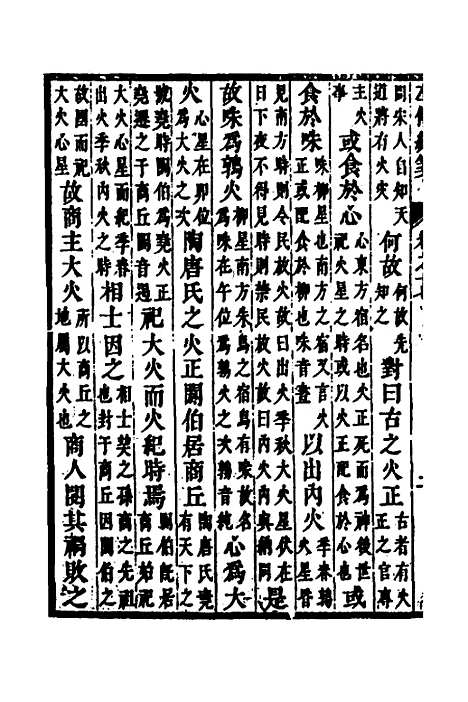 問宋人自知天道將有火災何故何故先知之對曰古之火正古者有火正之官專
主火事或食於心心東方宿名也火正死而為神後世祀火星之時或以火正配食於心也或
食於咮咮柳星也南方之宿又言火正或配食於柳也咮音晝以出內火季春鶉火星昏
見南方時則令民放火故曰出火季秋大火星伏在日下夜不得見時則禁民放火故曰內火內與納同是
故咮為鶉火柳星南方朱鳥之宿為咮在午位為鶉火之次鶉音純心為大
火心星在卯位為大火之次陶唐氏之火正閼伯居商丘陶唐氏堯有天下之
號堯時閼伯為堯火正堯遷之于商丘閼音遏祀大火而火紀時焉閼伯旣居商丘始祀
大火心星而紀季春出火季秋內火之時相土因之相士契之孫商之先祖也對于商丘因閼伯之
故國而祀大火心星故商主大火所以商丘之地屬大火也商人閱其禍敗之